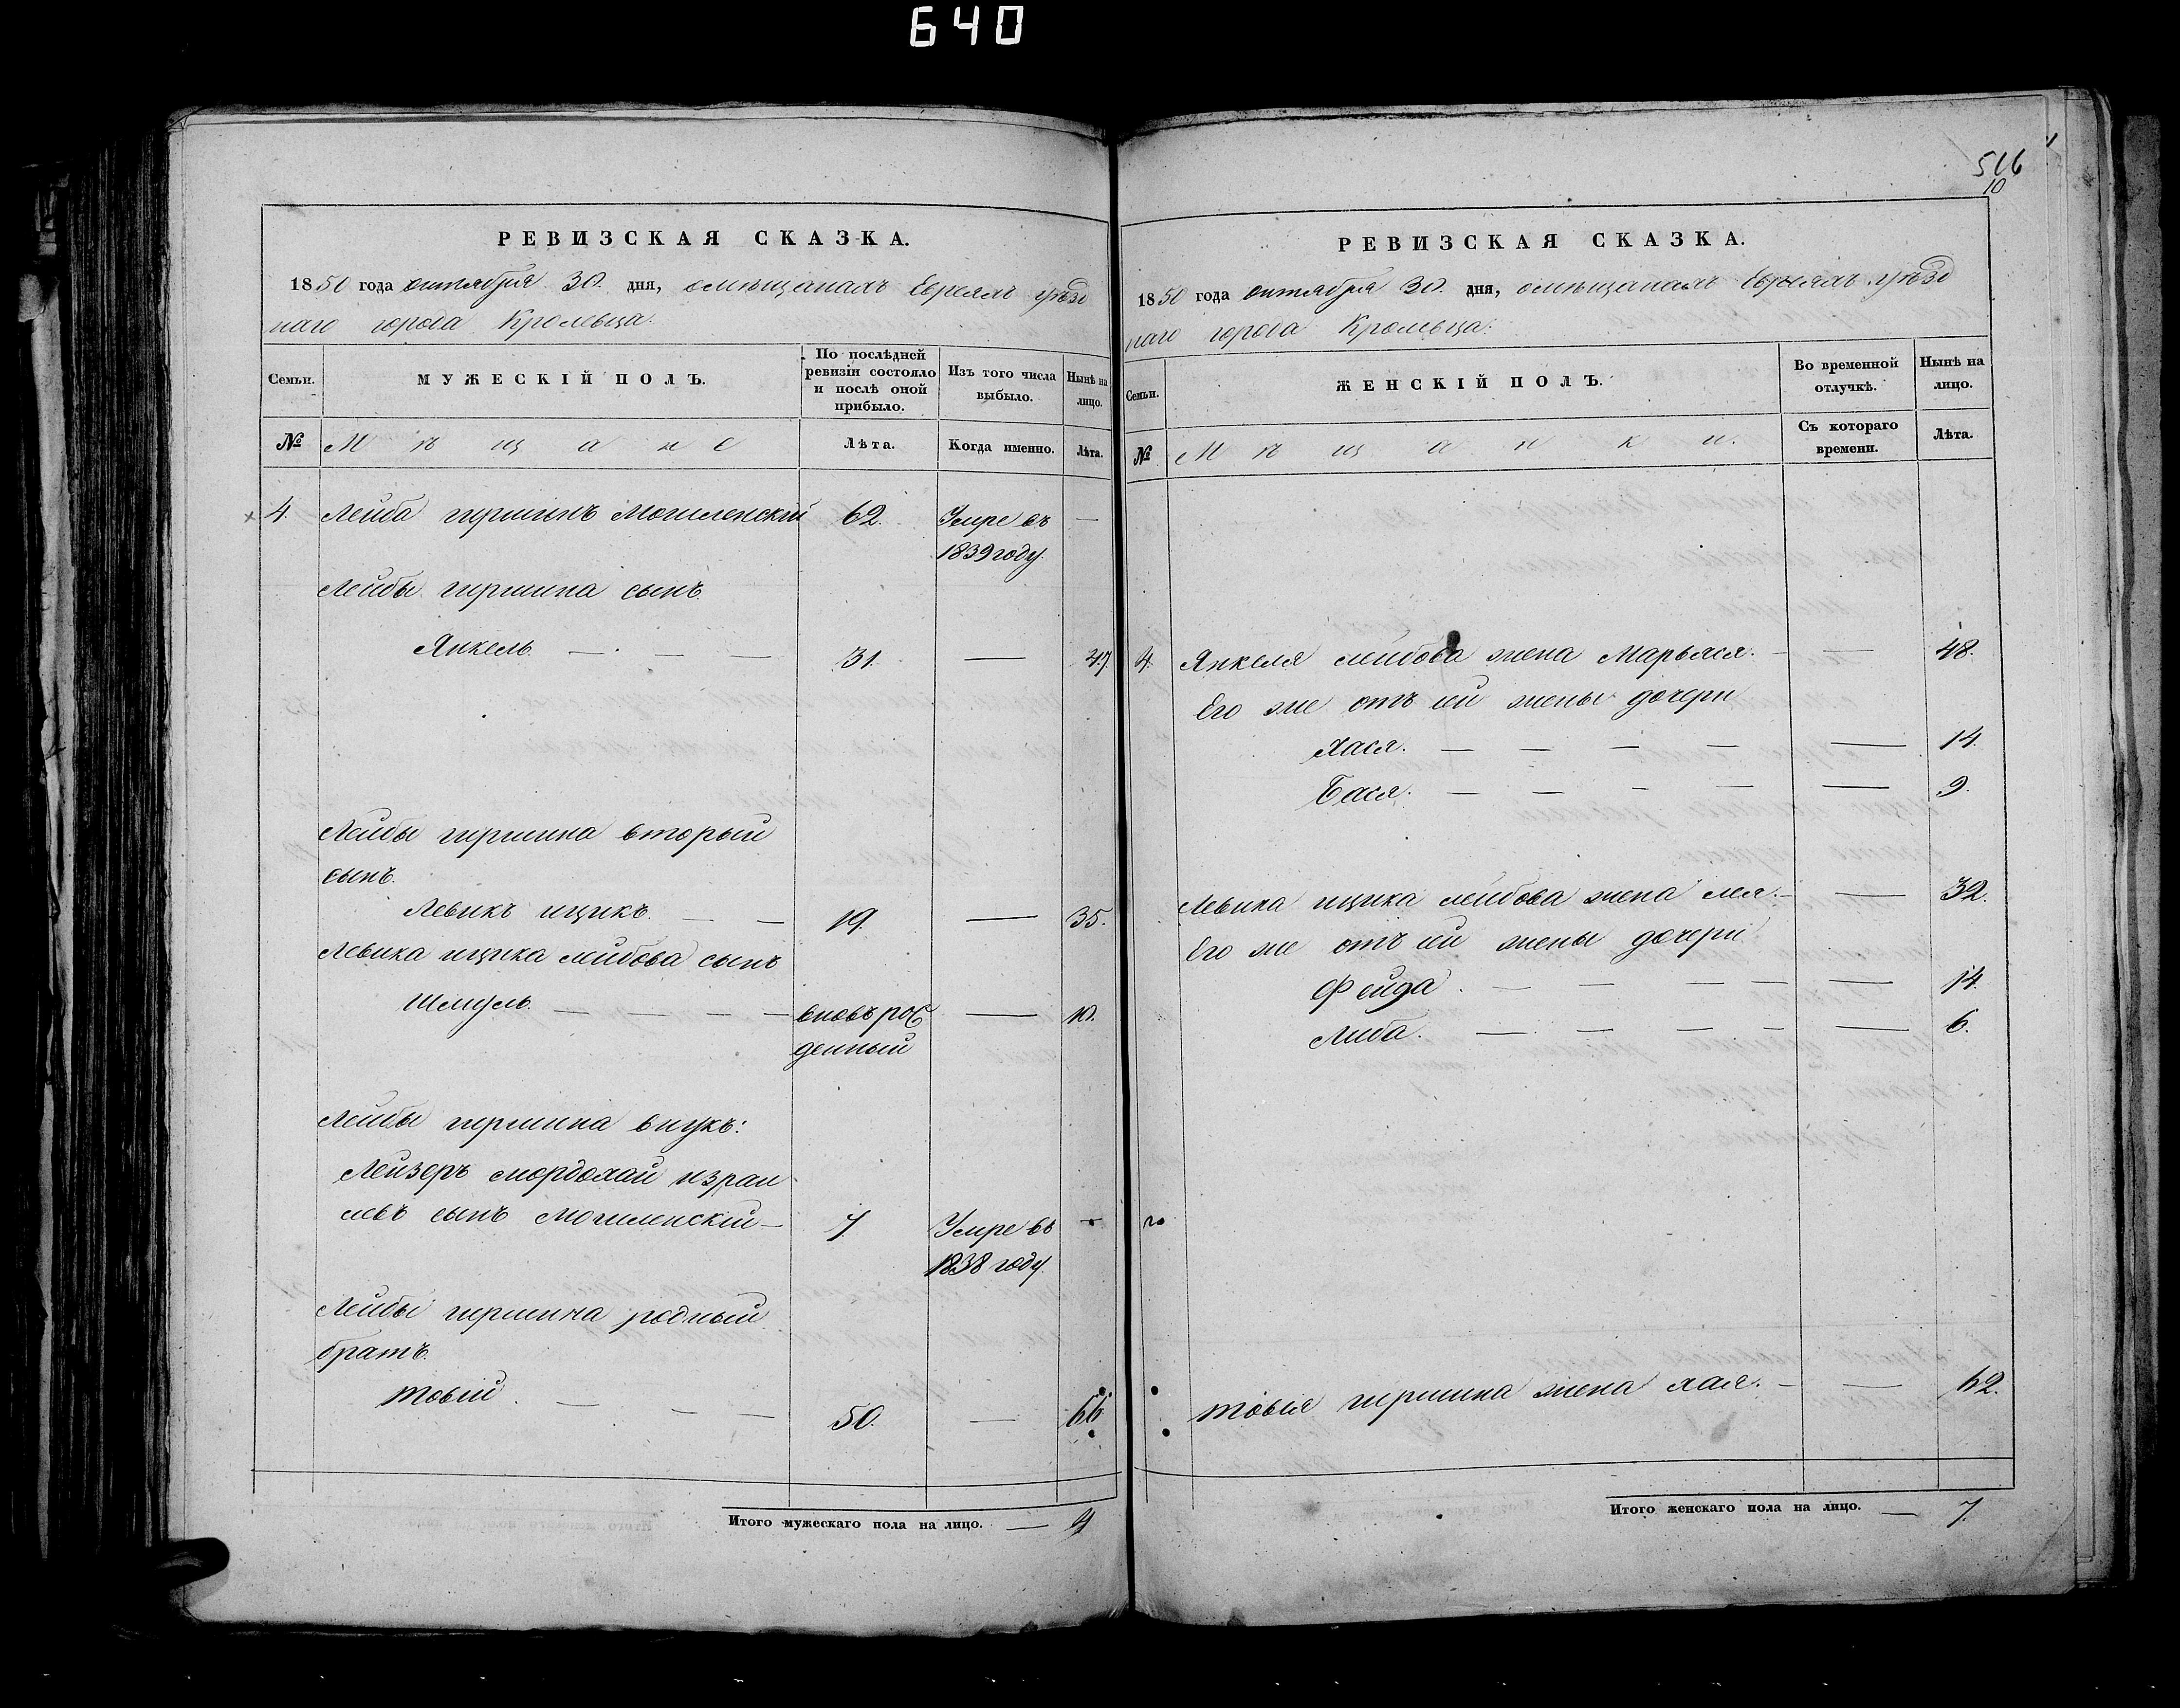 640
516
10
РЕВИЗСКАЯ СКАЗКА.
1850 года октября 30. дня, о мѣщанахъ Евреяхъ уѣзд
наго города Кролевца.
Семьи. МУЖЕСКІЙ ПОЛЪ. По послѣдней ревизіи состояло и послѣ оной прибыло. Изъ того числа выбыло. Нынѣ на лицо.
№ Мѣщане Лѣта. Когда именно. Лѣта.
4. Лейба гершинъ Могиленскій 62. Умре въ —
1839 году.
Лейбы гершина сынъ
Янкель. — — — 31. — 47
Лейбы гершина вторый
сынъ.
Левикъ ицикъ. — — 19. — 35.
Левика ицика лейбова сынъ
Шмуль. — — — — вновь рож — 10.
денный
Лейбы гершина внукъ:
Лейзеръ мордохай израи
левъ сынъ Могиленскій — 7. Умре въ —
1838 году.
Лейбы гершина родный
братъ.
Товій. — — — 50. — 66
Итого мужескаго пола на лицо. — 4
РЕВИЗСКАЯ СКАЗКА.
1850 года октября 30. дня, о мѣщанахъ Евреяхъ уѣзд
наго города Кролевца.
Семьи. ЖЕНСКІЙ ПОЛЪ. Во временной отлучкѣ. Нынѣ на лицо.
№ Мѣщанки. Съ котораго времени. Лѣта.
4. Янкеля лейбова жена Марьяся. — — 48.
Его же отъ сей жены дочери
Хася. — — — — — 14.
Бася. — — — — — 9.
Левика ицика лейбова жена Лея. — — 32.
Его же отъ сей жены дочери
Фейда. — — — — — 14.
Либа. — — — — — 6.
Товія гершина жена Хая. — — 62.
Итого женскаго пола на лицо. — 7.